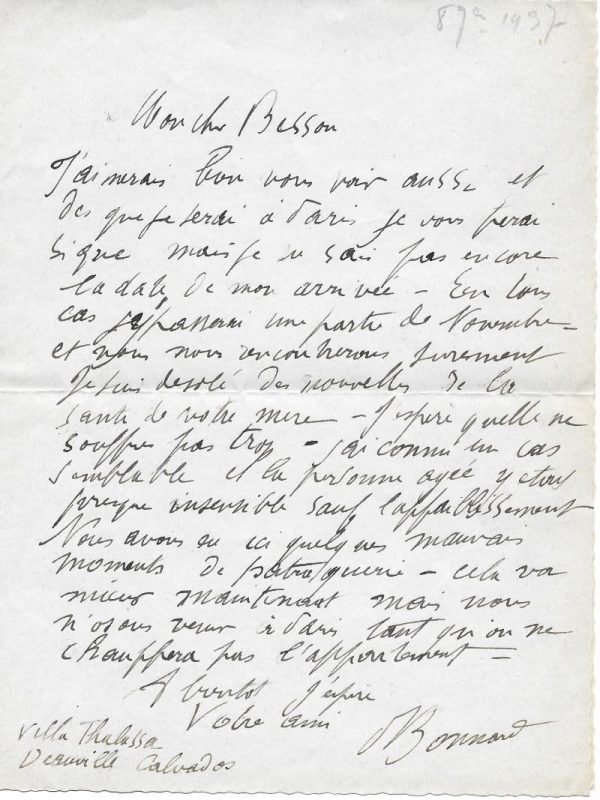 8 9bre 1937
Mon cher Besson
J'aimerais bien vous voir aussi et
des que je serai à Paris je vous ferai
signe mais je ne sais pas encore
la date de mon arrivée – En tous
cas j'y passerai une partie de Novembre –
et nous nous rencontrerons surement
Je suis desolé des nouvelles de la
santé de votre mere – J'espere qu'elle ne
souffre pas trop – j'ai connu un cas
semblable et la personne ageé y etait
presque insensible sauf l'affaiblissement
Nous avons eu ici quelques mauvais
moments de – cela va
mieux maintenant mais nous
n'osons venir à Paris tant qu'on ne
chauffera pas l'appartement –
A bientot j'espere
Votre ami
PBonnard
Villa Thalassa
Deauville Calvados